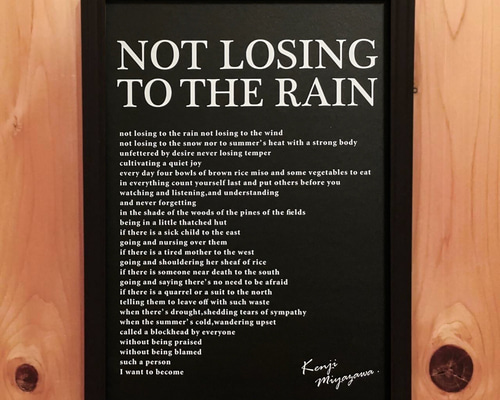 NOT LOSING
TO THE RAIN
not losing to the rain not losing to the wind
not losing to the snow nor to summer's heat with a strong body
unfettered by desire never losing temper
cultivating a quiet joy
every day four bowls of brown rice miso and some vegetables to eat
in everything count yourself last and put others before you
watching and listening,and understanding
and never forgetting
in the shade of the woods of the pines of the fields
being in a little thatched hut
if there is a sick child to the east
going and nursing over them
if there is a tired mother to the west
going and shouldering her sheaf of rice
if there is someone near death to the south
going and saying there's no need to be afraid
if there is a quarrel or a suit to the north
telling them to leave off with such waste
when there's drought,shedding tears of sympathy
when the summer's cold,wandering upset
called a blockhead by everyone
without being praised
without being blamed
such a person
I want to become
Kenji
Miyazawa.